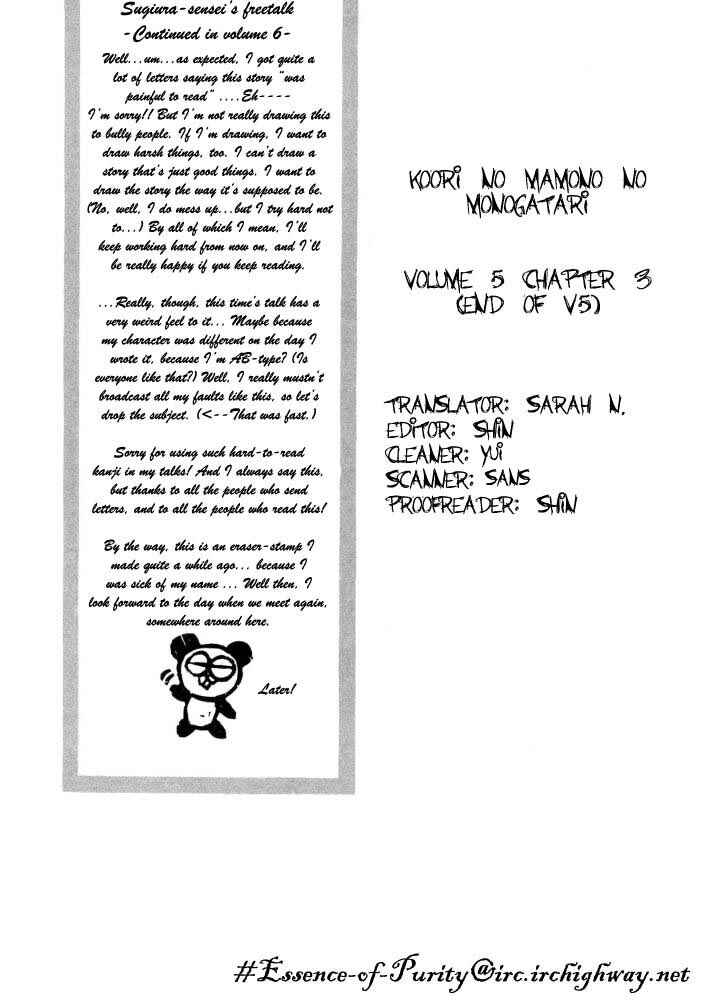 Sugiura-sensei's freetalk
-Continued in volume 6-
Well...um...as expected, I got quite a
lot of letters saying this story "was
painful to read" ....Eh----
I'm sorry!! But I'm not really drawing this
to bully people. If I'm drawing, I want to
draw harsh things, too. I can't draw a
story that's just good things. I want to
draw the story the way it's supposed to be.
(No, well, I do mess up...but I try hard not
to...) By all of which I mean, I'll
keep working hard from now on, and I'll
be really happy if you keep reading.
...Really, though, this time's talk has a
very weird feel to it... Maybe because
my character was different on the day I
wrote it, because I'm AB-type? (Is
everyone like that?) Well, I really mustn't
broadcast all my faults like this, so let's
drop the subject. (<--That was fast.)
Sorry for using such hard-to-read
kanji in my talks! And I always say this,
but thanks to all the people who send
letters, and to all the people who read this!
By the way, this is an eraser-stamp I
made quite a while ago... because I
was sick of my name ... Well then, I
look forward to the day when we meet again,
somewhere around here.
Later!
KOORI NO MAMONO NO
MONOGATARI
VOLUME 5 CHAPTER 3
(END OF V5)
TRANSLATOR: SARAH N.
EDITOR: SHIN
CLEANER: YUI
SCANNER: SANS
PROOFREADER: SHIN
#Essence-of-Purity@irc.irchighway.net